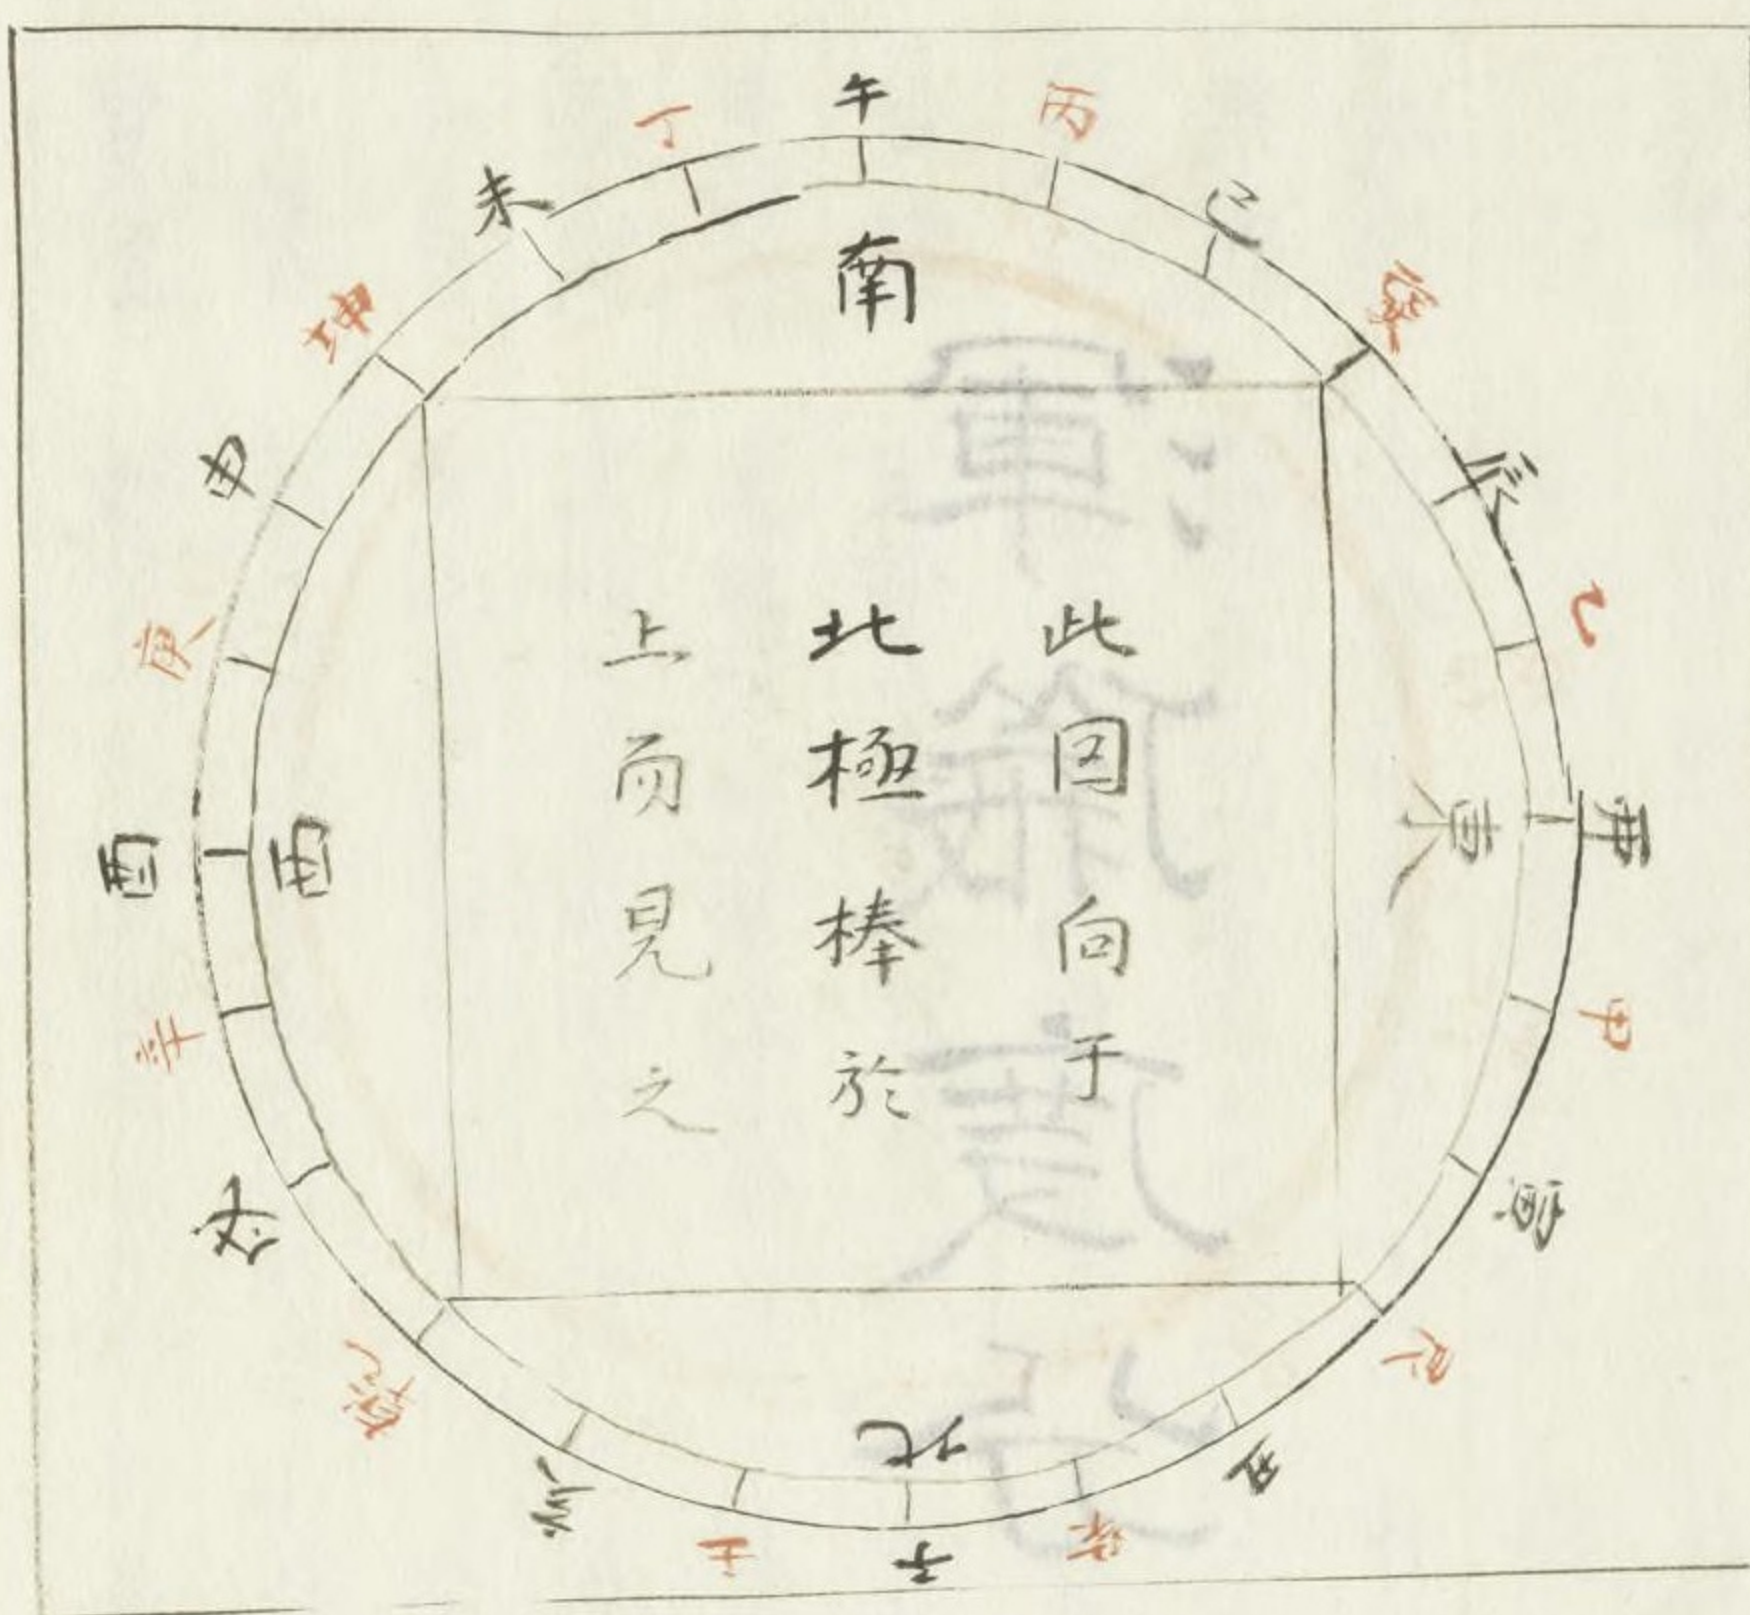 午
丙
巳
巽
辰
乙
卯
甲
寅
艮
丑
癸
子
壬
亥
乾
戌
辛
酉
庚
申
坤
未
丁
南
東
北
西
此図向于
北極棒於
上而見之